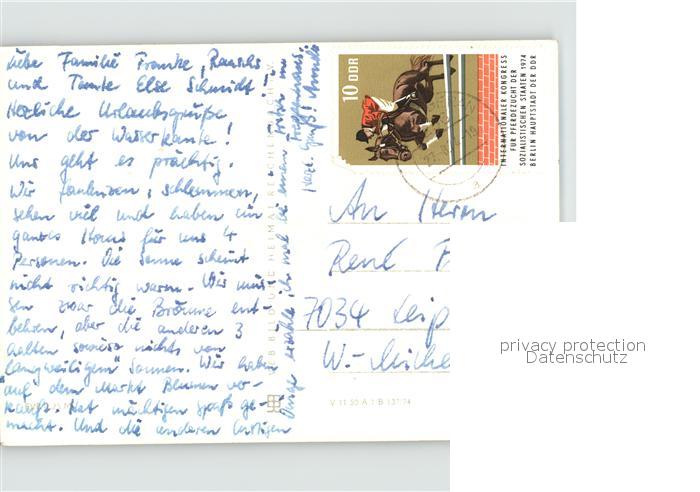 Liebe Familie Franke, Rauschs
und Tante Else Schmidt!
Herzliche Urlaubsgrüße
von der Wasserkante!
Uns geht es prächtig.
Wir faulenzen, schlemmen,
sehen viel und haben ein
ganzes Haus für uns 4
Personen. Die Sonne scheint
nicht richtig warm. Wir müs-
sen zwar die Bräune ent-
behren, aber die anderen 3
halten sowieso nichts von
"langweiligem" Sonnen. Wir haben
auf dem Markt Blumen ver-
kauft. Hat mächtigen Spaß ge-
macht. Und die anderen lustigen
Dinge erzähle ich mal bei einem
Herzl. Gruß!
10 DDR
INTERNATIONALER KONGRESS
FÜR PFERDEZUCHT DER
SOZIALISTISCHEN STAATEN 1974
BERLIN HAUPTSTADT DER DDR
An Herrn
René F
7034 Leip
W.-Miche
V 11 50 A 1/B 137/74
privacy protection
Datenschutz